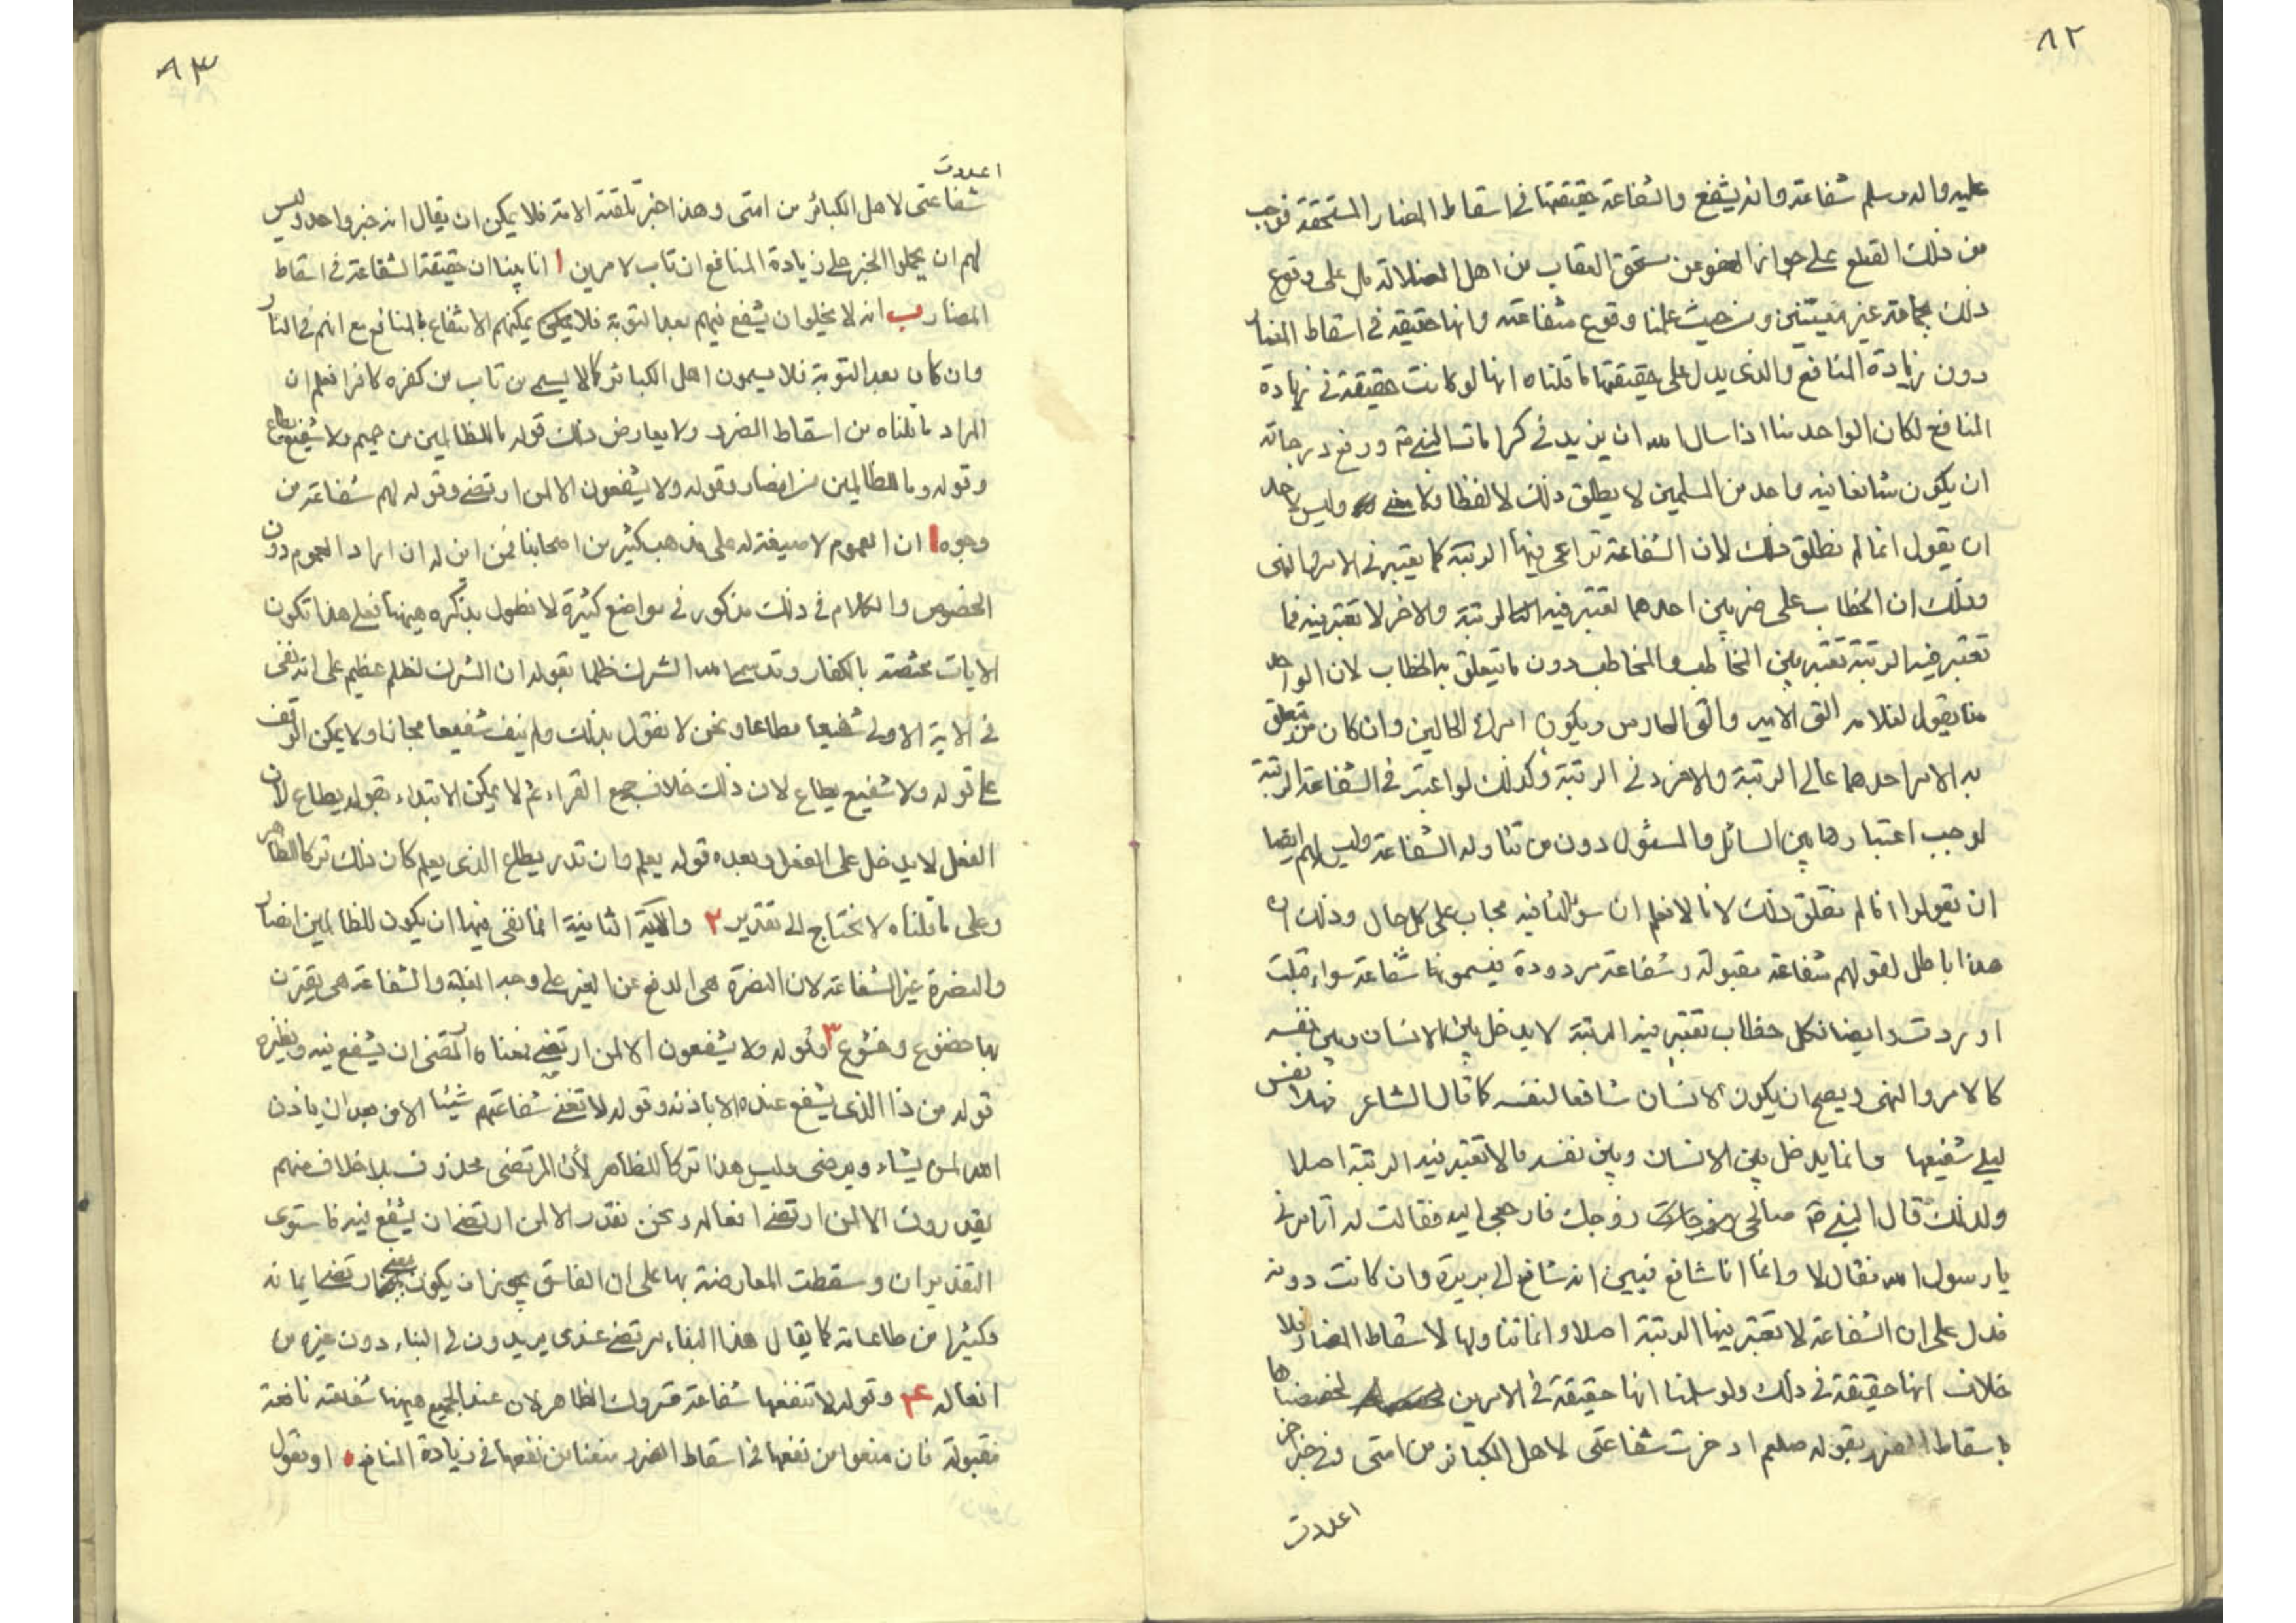 ٨٢
عليه واله وسلم شفاعة وانه يشفع والشفاعة حقيقتها في اسقاط المضار المستحقة فوجب
من ذلك القطع على جواز العفو عن مستحق العقاب من اهل الصلاة بل على وقوع
ذلك بجماعة غير معينين ومن حيث علمنا وقوع شفاعته وانها حقيقة في اسقاط المضار
دون زيادة المنافع والذى يدل على حقيقتها ما قلناه انها لو كانت حقيقة في زيادة
المنافع لكان الواحد منا اذا سال الله ان يزيد في كرامات النبي ورفع درجاته
ان يكون شافعا فيه واحد من المسلمين لا يطلق ذلك لا لفظا ولا معنى وليس لاحد
ان يقول انما لم نطلق ذلك لان الشفاعة تراعى فيها الرتبة كما يعتبر في الامر والنهى
وذلك ان الخطاب على ضربين احدهما تعتبر فيه الرتبة والاخر لا تعتبر فيه فما
تعتبر فيه الرتبة تعتبر بين المخاطب والمخاطب دون ما يتعلق به الخطاب لان الواحد
منا يقول لغلامه الق الامير والق الحارس ويكون امرا في الحالين وان كان من يتعلق
به الامر احدهما عالى الرتبة والاخر دنى الرتبة وكذلك لو اعتبر في الشفاعة الرتبة
لوجب اعتبارها بين السائل والمسئول دون من تناوله الشفاعة وليس لهم ايضا
ان يقولوا انا لم نطلق ذلك لانا لا نعلم ان سؤالنا فيه مجاب على كل حال وذلك ان
هذا باطل لقولهم شفاعة مقبولة وشفاعة مردودة فيسمونها شفاعة سواء قبلت
او ردت وايضا فكل خطاب تعتبر فيه الرتبة لا يدخل بين الانسان وبين نفسه
كالامر والنهى ويصح ان يكون الانسان شافعا لنفسه كما قال الشاعر فهلا نفس
ليلى شفيعها وانما يدخل بين الانسان وبين نفسه ما لا تعتبر فيه الرتبة اصلا
ولذلك قال النبي صالحى زوجك فارجعى اليه فقالت له اتامرنى
يا رسول الله فقال لا وانما انا شافع فبين انه شافع الى بريرة وان كانت دونه
فدل على ان الشفاعة لا تعتبر فيها الرتبة اصلا وانما تناولها لاسقاط المضار فلا
خلاف انها حقيقة في ذلك ولو سلمنا انها حقيقة في الامرين لخصصناها
باسقاط الضرر بقوله صلعم ادخرت شفاعتى لاهل الكبائر من امتى وفى خبر اخر
اعددت
٨٣
اعددت
شفاعتى لاهل الكبائر من امتى وهذا خبر تلقته الامة فلا يمكن ان يقال انه خبر واحد وليس
لهم ان يحملوا الخبر على زيادة المنافع ان تاب لامرين ا انا بينا ان حقيقة الشفاعة في اسقاط
المضار ب انه لا يخلو ان يشفع فيهم بعد التوبة فلا يمكنهم الانتفاع بالمنافع مع انهم في النار
وان كان بعد التوبة فلا يسمون اهل الكبائر كما لا يسمى من تاب من كفره كافرا فعلم ان
المراد ما قلناه من اسقاط الضرر ولا يعارض ذلك قوله ما للظالمين من حميم ولا شفيع يطاع
وقوله وما للظالمين من انصار وقوله ولا يشفعون الا لمن ارتضى وقوله لهم شفاعة من
وجوه ا ان العموم لا صيغة له على مذهب كثير من اصحابنا فمن اين له ان اراد العموم دون
الخصوص والكلام في ذلك مذكور في مواضع كثيرة لا نطول بذكره هيهنا فعلى هذا تكون
الايات مختصة بالكفار وقد سمى الله الشرك ظلما بقوله ان الشرك لظلم عظيم على انه نفى
في الاية الاولى شفيعا مطاعا ونحن لا نقول بذلك ولم ينف شفيعا مجازا ولا يمكن الوقف
على قوله ولا شفيع يطاع لان ذلك خلاف جميع القراء ثم لا يمكن الابتداء بقوله يطاع لان
الفعل لا يدخل على الفعل وبعده قوله يعلم وان قدر يطاع الذى يعلم كان ذلك تركا للظاهر
وعلى ما قلناه لا نحتاج الى تقدير ٢ والآية الثانية انما نفى فيها ان يكون للظالمين انصار
والنصرة غير الشفاعة لان النصرة هى الدفع عن الغير على وجه الغلبة والشفاعة هى يقترن
بها خضوع وخشوع ٣ وقوله ولا يشفعون الا لمن ارتضى معناه المرتضى ان يشفع فيه ونظيره
قوله من ذا الذى يشفع عنده الا باذنه وقوله لا تغنى شفاعتهم شيئا الا من بعد ان ياذن
الله لمن يشاء ويرضى وليس هذا تركا للظاهر لأن المرتضى محذوف بلا خلاف منهم
يقدرون الا لمن ارتضى افعاله ونحن نقدر الا لمن ارتضى ان يشفع فيه فاستوى
التقديران وسقطت المعارضة بها على ان الفاسق يجوز ان يكون ارتضى ايمانه
وكثيرا من طاعاته كما يقال هذا البناء مرتضى عندى يريدون في البناء دون غيره من
افعاله ٤ وقوله لا تنفعها شفاعة متروك الظاهر لان عند الجميع هيهنا شفاعة نافعة
مقبولة فان منعوا من نفعها في اسقاط الضرر منعنا من نفعها في زيادة المنافع ٥ او نقول